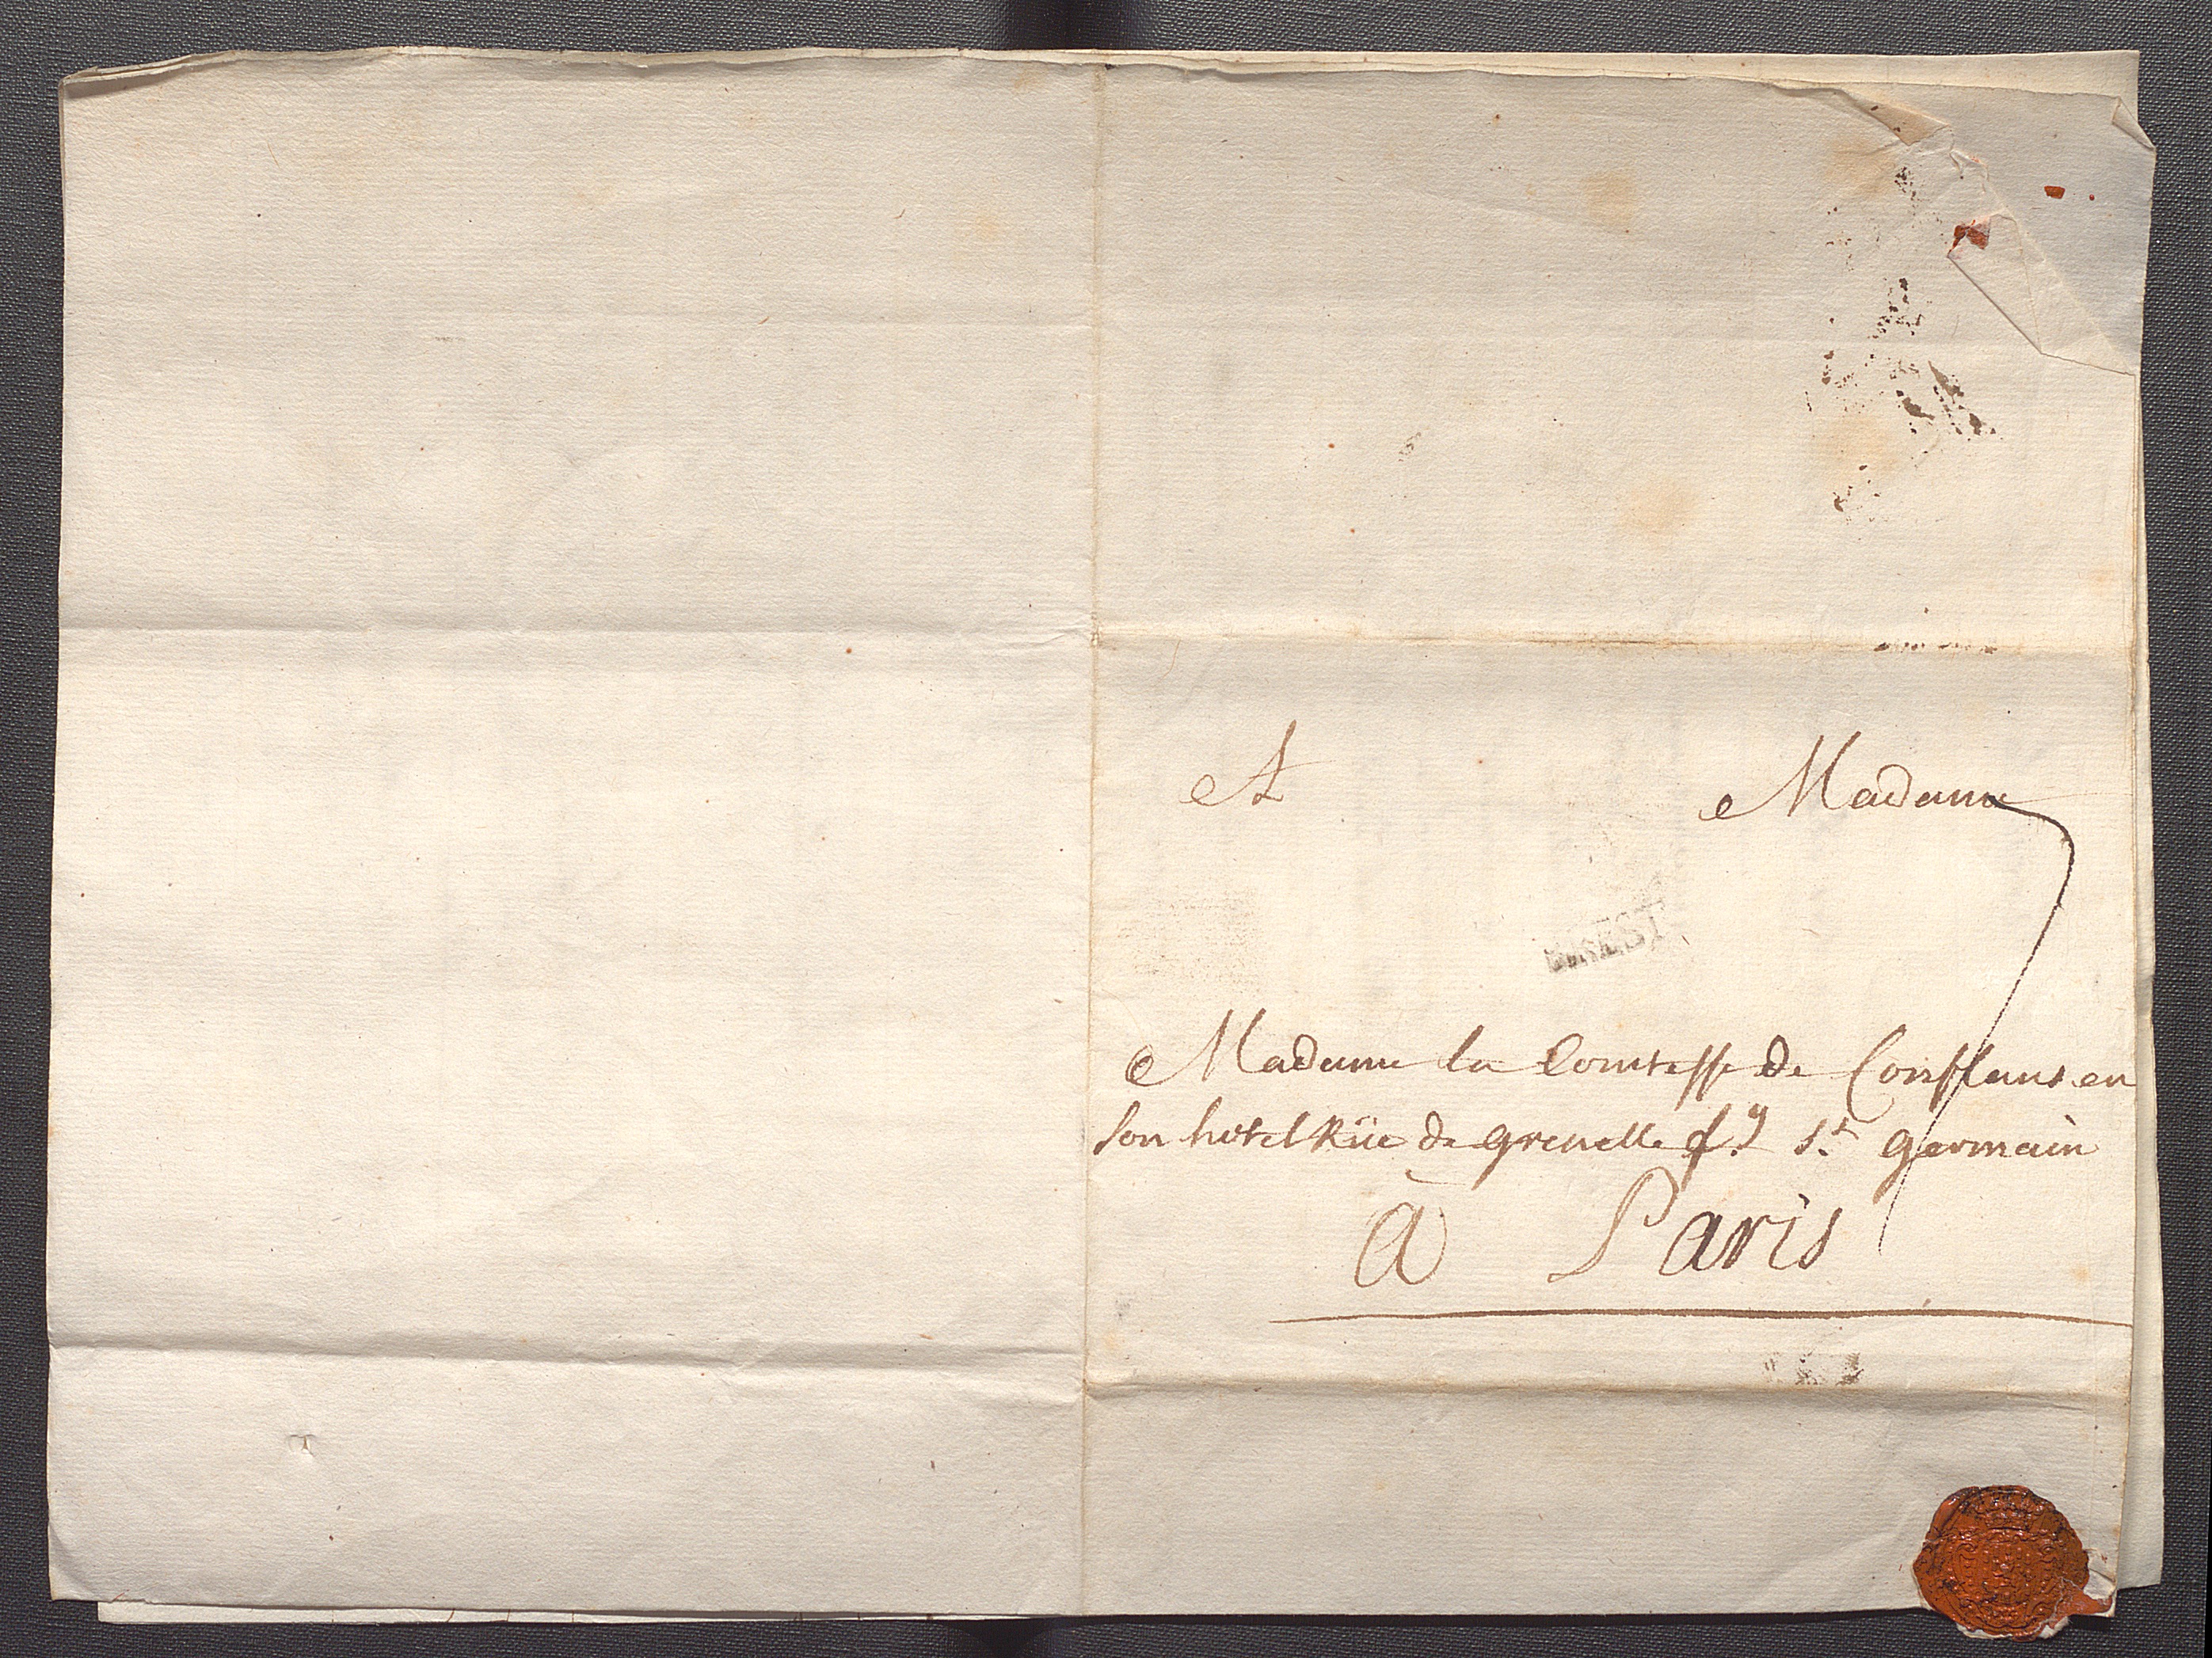 A Madame
BREST
Madame la Comtesse de Conflans en
son hôtel Rüe de grenelle f.g S.t germain
à Paris